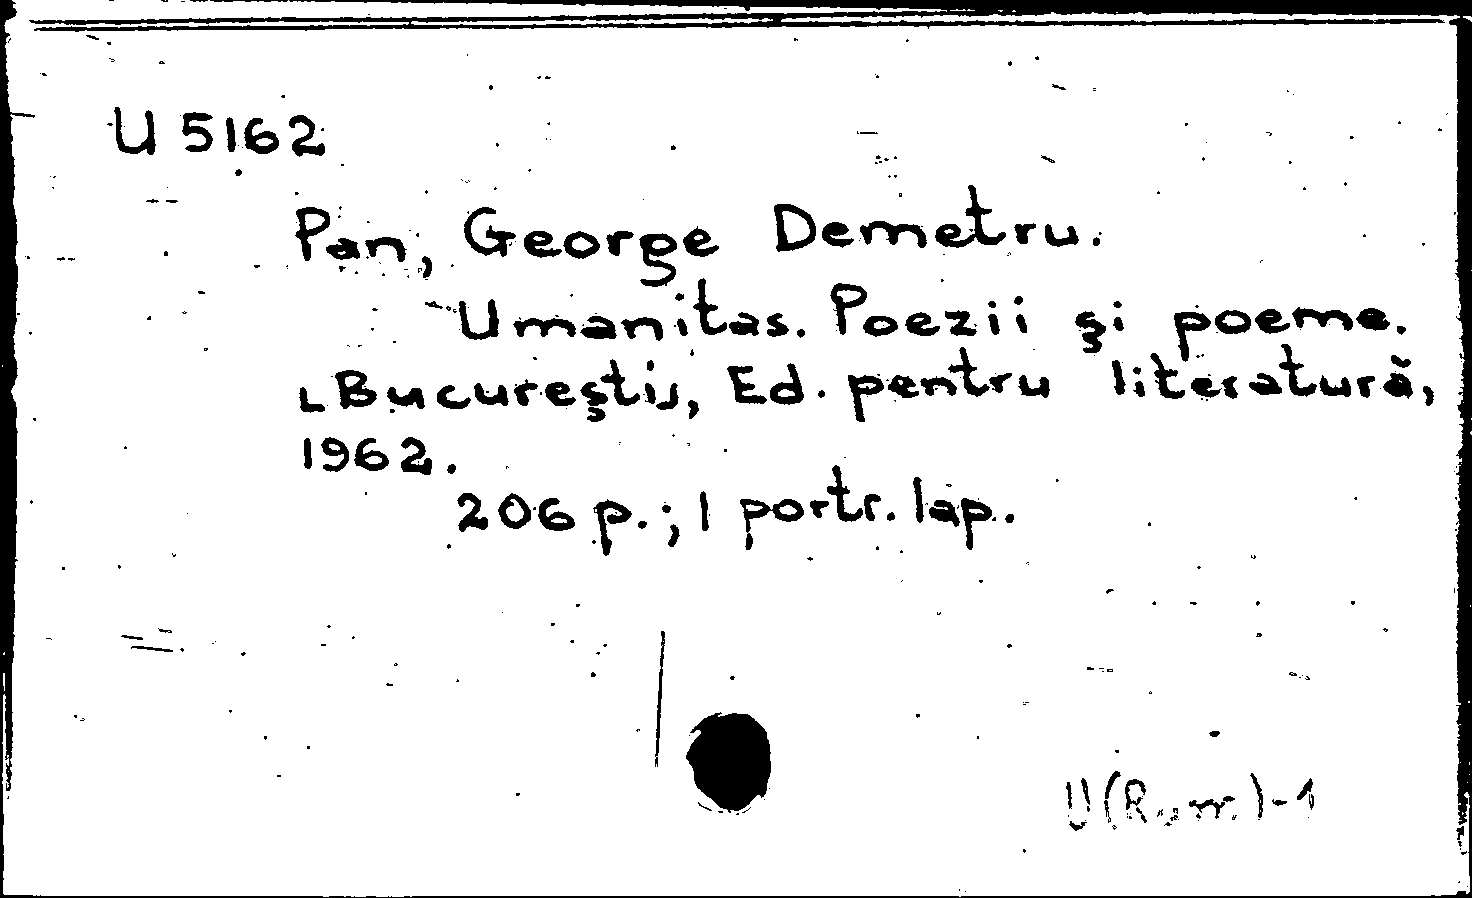 U 5162
Pan, George Demetru.
Umanitas. Poezii şi poeme.
[Bucureşti], Ed. pentru literatură,
1962.
206 p.; 1 portr. lap.
U(Rum.)-1